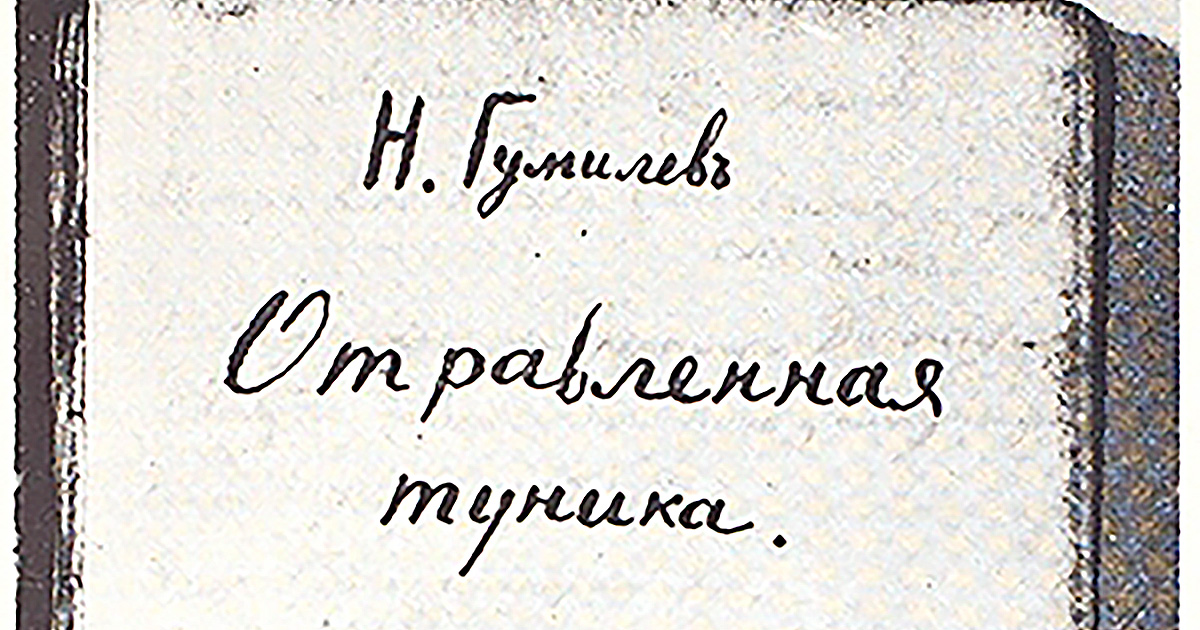 Н. Гумилевъ
Отравленная
туника.